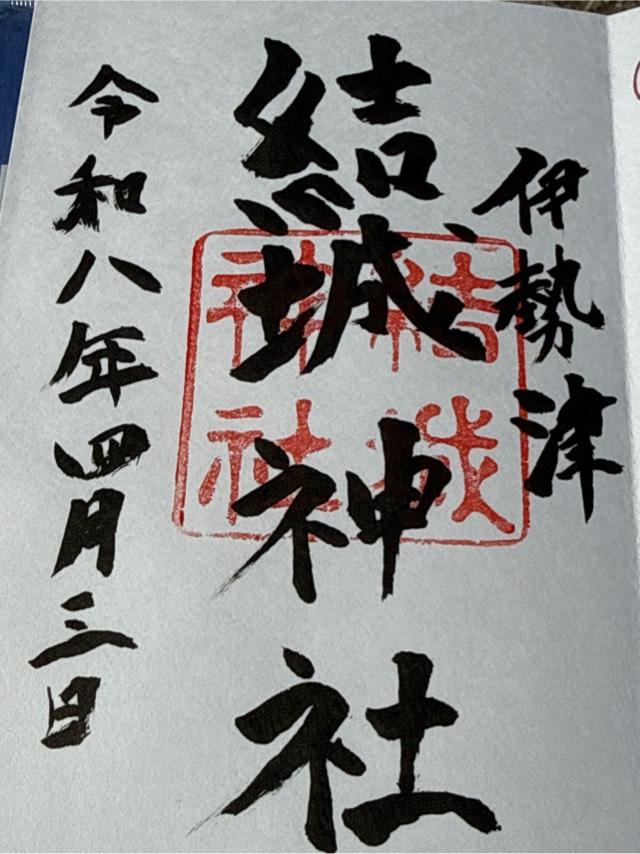 伊勢津
結城神社
結城
神社
令和八年四月三日